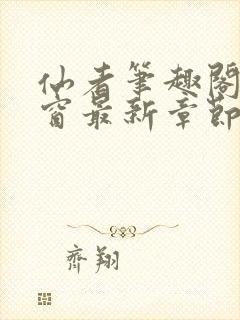 仙者筆趣閣
窗最新章節
齊翔